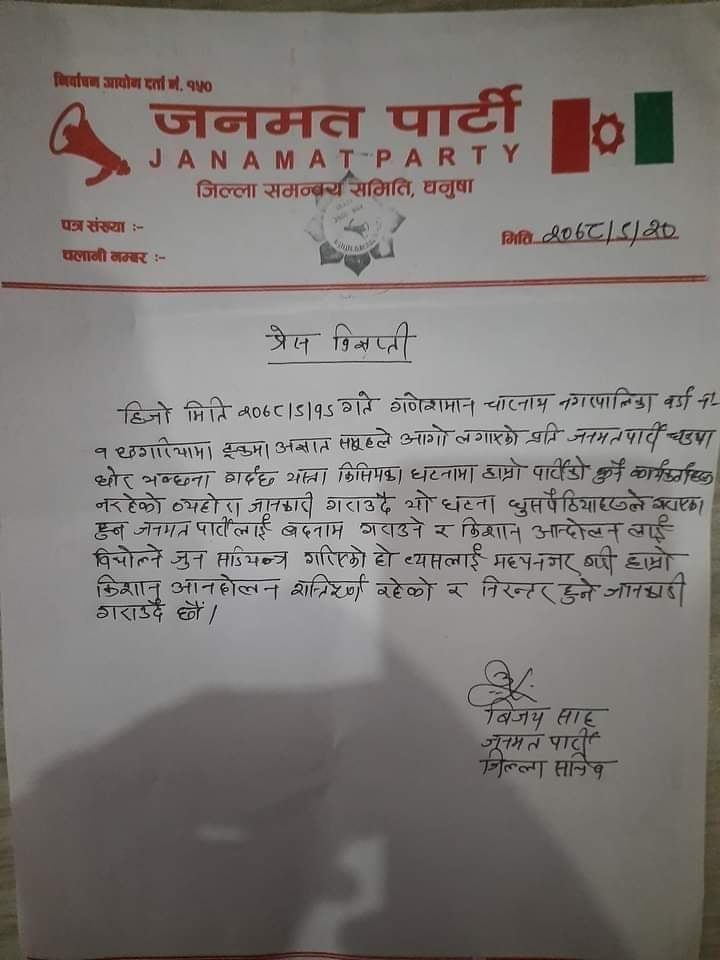 निर्वाचन आयोग दर्ता नं. १५०
जनमत पार्टी
JANAMAT PARTY
जिल्ला समन्वय समिति, धनुषा
पत्र संख्या :-
चलानी नम्बर :-
मिति २०७८/५/२०
प्रेस विज्ञप्ती
हिजो मिति २०७८/५/१९ गते गणेशमान चारनाथ नगरपालिका वर्डा नं-
१ छगरियामा ट्रकमा अज्ञात समूहले आगो लगाएको प्रति जनमत पार्टी
घोर भर्त्छना गर्दछ यस्ता किसिमका घटनामा हाम्रो पार्टीको कुनै कार्यकर्ताहरु
नरहेको व्यहोरा जानकारी गराउदै यो घटना घुसपैठियाहरुले गराएका
हुन जनमत पार्टीलाई बदनाम गराउने र किशान आन्दोलन लाई
विथोल्ने जुन सडियन्त्र गरिएको हो त्यसलाई मध्यनजर गरी हाम्रो
किशान आनदोलन शान्तिपूर्ण रहेको र निरन्तर हुने जानकारी
गराउदै छौं।
बिजय साह
जनमत पार्टी
जिल्ला सचिव